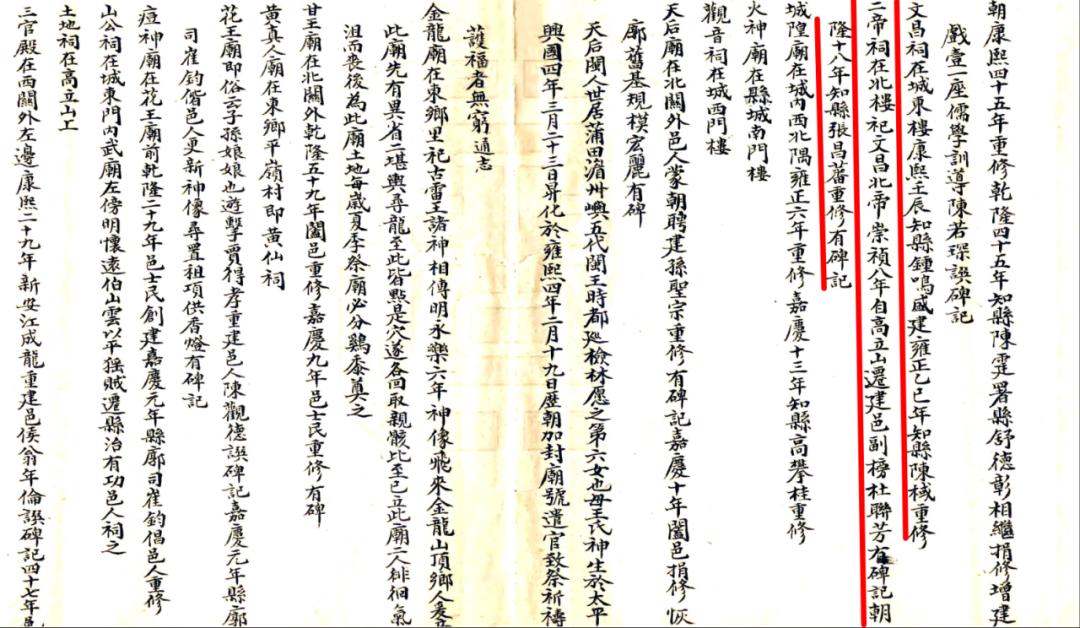 朝康熙四十五年重修乾隆四十五年知縣陳霆署縣舒德彰相繼捐修增建
戲壹一座儒學訓導陳若琛譔碑記
文昌祠在城東樓康熙壬辰知縣鍾鳴盛建雍正乙巳年知縣陳棫重修
二帝祠在北樓祀文昌北帝崇禎八年自高立山遷建邑副榜杜聯芳有碑記朝
隆十八年知縣張昌蕃重修有碑記
城隍廟在城內西北隅雍正六年重修嘉慶十三年知縣高攀桂重修
火神廟在縣城南門樓
觀音祠在城西門樓
天后廟在北關外邑人蒙朝聘建孫聖宗重修有碑記嘉慶十年闔邑捐修恢
廓舊基規模宏麗有碑
天后閩人世居蒲田湄州嶼五代閩王時都巡檢林愿之第六女也母王氏神生於太平
興國四年三月二十三日昇化於雍熙四年二月十九日歷朝加封廟號遣官致祭祈禱
護福者無窮通志
金龍廟在東鄉里祀古雷王諸神相傳明永樂六年神像飛來金龍山頂鄉人爰立
此廟先有異省二堪輿尋龍至此皆點是穴遂各回取親骸比至已立此廟二人徘徊氣
沮而喪後為此廟土地每歲夏季祭廟必分鷄黍奠之
甘王廟在北關外乾隆五十九年闔邑重修嘉慶九年邑士民重修有碑
黃真人廟在東鄉平嶺村即黃仙祠
花王廟即俗云子孫娘娘也遊擊賈得孝重建邑人陳觀德譔碑記嘉慶元年縣廓
司崔鈞偕邑人更新神像尋置租項供香燈有碑記
痘神廟在花王廟前乾隆二十九年邑士民創建嘉慶元年縣廓司崔鈞倡邑人重修
山公祠在城東門內武廟左傍明懷遠伯山雲以平猺賊遷縣治有功邑人祠之
土地祠在高立山工
三官殿在西關外左邊康熙二十九年新安江成龍重建邑侯翁年倫譔碑記四十七年邑